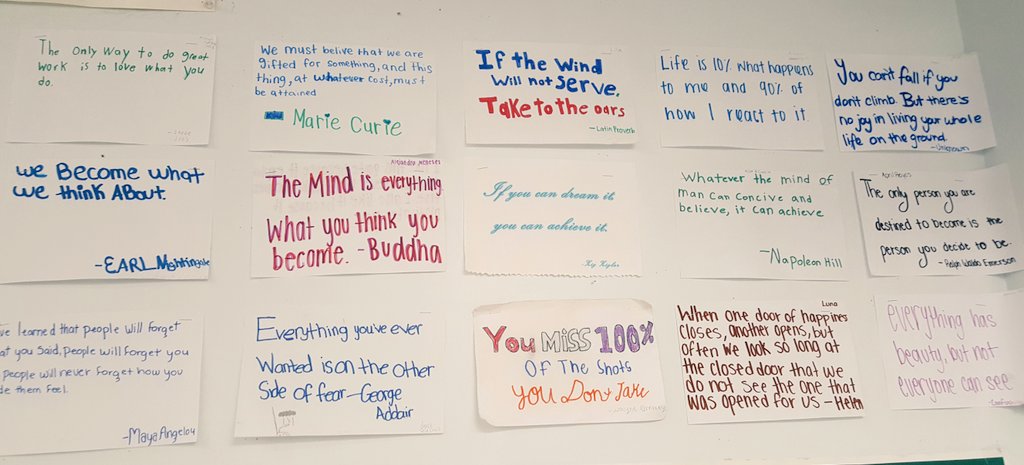 The Only Way to do great
work is to love what you
do.
We must belive that we are
gifted for something, and this
thing, at whatever cost, must
be attained
Marie Curie
If the Wind
Will not Serve,
Take to the oars
- Latin Proverb
Life is 10% what happens
to me and 90% of
how I react to it.
You can't fall if you
don't climb. But there's
no joy in living your whole
life on the ground.
-Unknown
we Become what
we think ABout.
-EARL Nightingale
Alejandra Meneses
The Mind is everything.
What you think you
become. -Buddha
If you can dream it,
you can achieve it.
Whatever the mind of
man can concive and
believe, it can achieve
-Napoleon Hill
April Hayes
The only person you are
destined to become is the
person you decide to be.
- Ralph Waldo Emerson
learned that people will forget
you said, people will forget you
people will never forget how you
them feel.
-Maya Angelou
Everything you've ever
Wanted is on the other
Side of fear-George
Addair
You Miss 100%
Of The Shots
you Don't Take
Luna
When one door of happines
closes, another opens, but
often we look so long at
the closed door that we
do not see the one that
was opened for us - Helen
everything has
beauty, but not
everyone can see